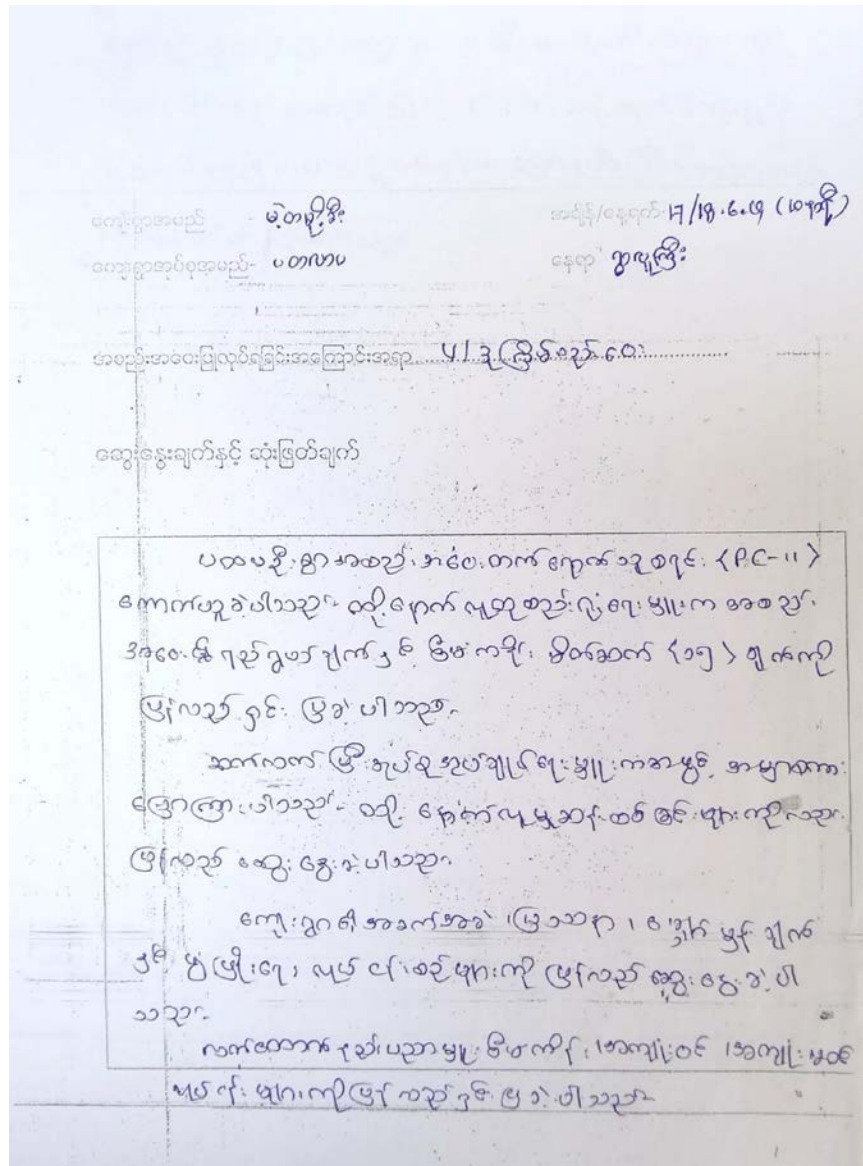 ကျေးရွာအမည် - မဲ့တမူို့ဒီး အချိန်/နေ့ရက်- ၁၇/၁၉.၆.၁၅ (၁၀နာရီ)
ကျေးရွာအုပ်စုအမည်- ပတလာပ နေရာ - ရွာလူကြီး
အစည်းအဝေးပြုလုပ်ရခြင်းအကြောင်းအရာ ပ/ဒု ကြိမ်စည်းဝေး
ဆွေးနွေးချက်နှင့် ဆုံးဖြတ်ချက်
ပထမဦးစွာ အစည်းအဝေး တက်ရောက်သူစာရင်း <PC-11>
ကောက်ယူခဲ့ပါသည်။ ထို့နောက် လူထုစည်းရုံးရေးမှူးက အစည်း
အဝေး၏ ရည်ရွယ်ချက်နှင့် စီမံကိန်း မိတ်ဆက် <၁၅> ချက်ကို
ပြန်လည် ရှင်းပြခဲ့ပါသည်။
ဆက်လက်ပြီး အုပ်စုအုပ်ချုပ်ရေးမှူးက အဖွင့် အမှာစကား
ပြောကြားပါသည်။ ထို့နောက် လူမှုဆန်းစစ်ခြင်းများကိုလည်း
ပြန်လည် ဆွေးနွေးခဲ့ပါသည်။
ကျေးရွာ၏ အခက်အခဲ၊ ပြဿနာ၊ မျှော်မှန်းချက်
နှင့် ဖွံ့ဖြိုးရေး လုပ်ငန်းစဉ်များကို ပြန်လည် ဆွေးနွေးခဲ့ပါ
သည်။
လက်ထောက်နည်းပညာမှူး စီမံကိန်း အကျုံးဝင်၊ အကျုံးမဝင်
လုပ်ငန်းများကို ပြန်လည်ရှင်းပြခဲ့ပါသည်။